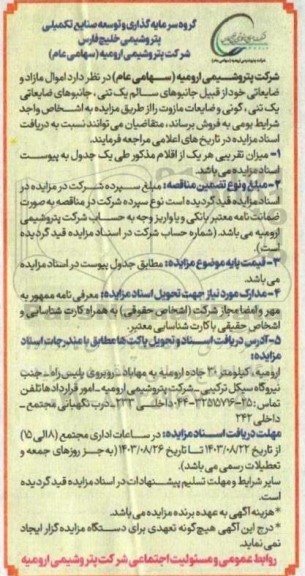 گروه سرمایه گذاری و توسعه صنایع تکمیلی
پتروشیمی خلیج فارس
شرکت پتروشیمی ارومیه (سهامی عام)
شرکت پتروشیمی ارومیه (سهامی عام) در نظر دارد اموال مازاد و
ضایعاتی خود از قبیل جانبوهای سالم یک تنی ، جانبوهای ضایعاتی
یک تنی ، گونی و ضایعات مازوت را از طریق مزایده به اشخاص واجد
شرایط بومی به فروش برساند، متقاضیان می توانند نسبت به دریافت
اسناد مزایده در تاریخ های اعلامی مراجعه فرمایند.
۱- میزان تقریبی هر یک از اقلام مذکور طی یک جدول به پیوست
اسناد مزایده می باشد.
۲-مبلغ و نوع تضمین مناقصه: مبلغ سپرده شرکت در مزایده در
اسناد مزایده قید گردیده است نوع سپرده شرکت در مناقصه به صورت
ضمانت نامه معتبر بانکی و یا واریز وجه به حساب شرکت پتروشیمی
ارومیه می باشد. (شماره حساب شرکت در اسناد مزایده قید گردیده
است).
۳-قیمت پایه موضوع مزایده: مطابق جدول پیوست در اسناد مزایده
می باشد.
۴-مدارک مورد نیاز جهت تحویل اسناد مزایده: معرفی نامه ممهور به
مهر و امضا مجاز شرکت (اشخاص حقوقی) به همراه کارت شناسایی و
اشخاص حقیقی با کارت شناسایی معتبر.
۵-آدرس دریافت اسناد و تحویل پاکت ها مطابق با مندرجات اسناد
مزایده:
ارومیه، کیلومتر ۳۰ جاده ارومیه به مهاباد- روبروی پلیس راه- جنب
نیروگاه سیکل ترکیبی- شرکت پتروشیمی ارومیه- امور قراردادها تلفن
تماس: ۲۵-۳۲۵۱۵۷۱۶-۰۴۴ داخلی ۲۲۳- درب نگهبانی مجتمع-
داخلی ۲۴۲
مهلت دریافت اسناد مزایده: در ساعات اداری مجتمع (۸ الی ۱۵)
از تاریخ ۱۴۰۳/۰۸/۲۲ تا تاریخ ۱۴۰۳/۰۸/۲۶ (به جز روزهای جمعه و
تعطیلات رسمی می باشد).
سایر شرایط و مهلت تسلیم پیشنهادات در اسناد مزایده قید گردیده
است.
*هزینه آگهی به عهده برنده مزایده می باشد.
*درج این آگهی هیچ گونه تعهدی برای دستگاه مزایده گزار ایجاد
نمی نماید.
روابط عمومی و مسئولیت اجتماعی شرکت پتروشیمی ارومیه